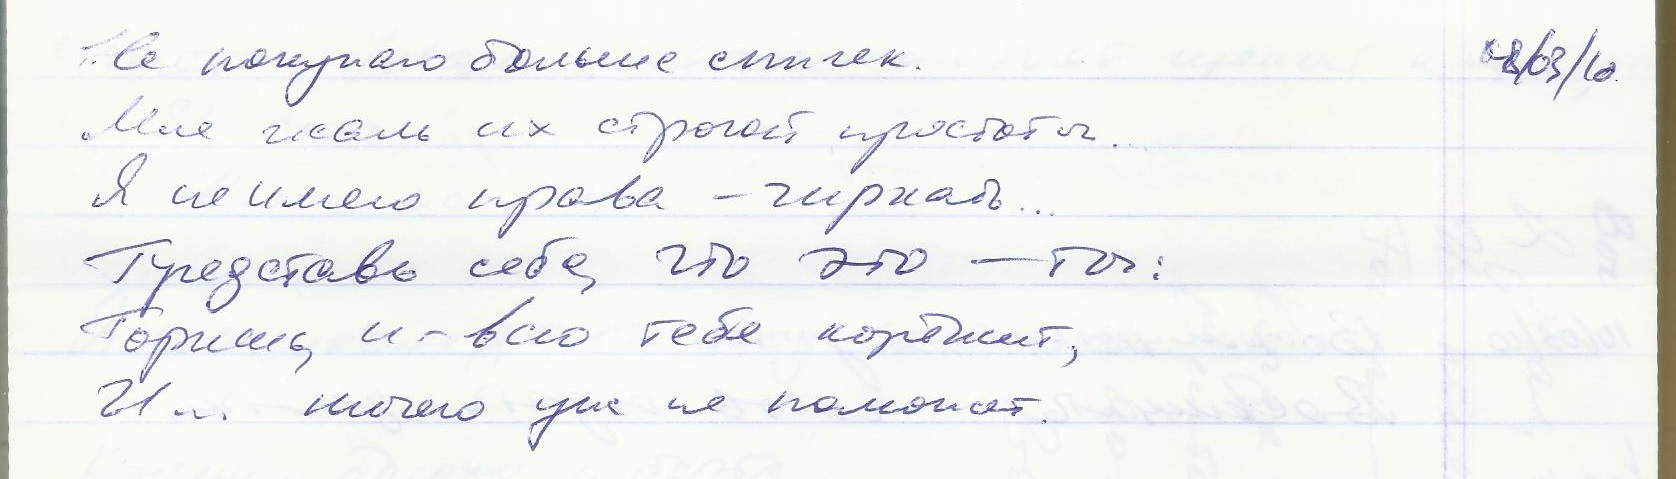 Не покупаю больше спичек. 08/03/10.
Мне жаль их строгой простоты...
Я не имею права – чиркать...
Представь себе, что это – ты:
Горишь, и – всю тебя корёжит,
И ... ничего уж не поможет.